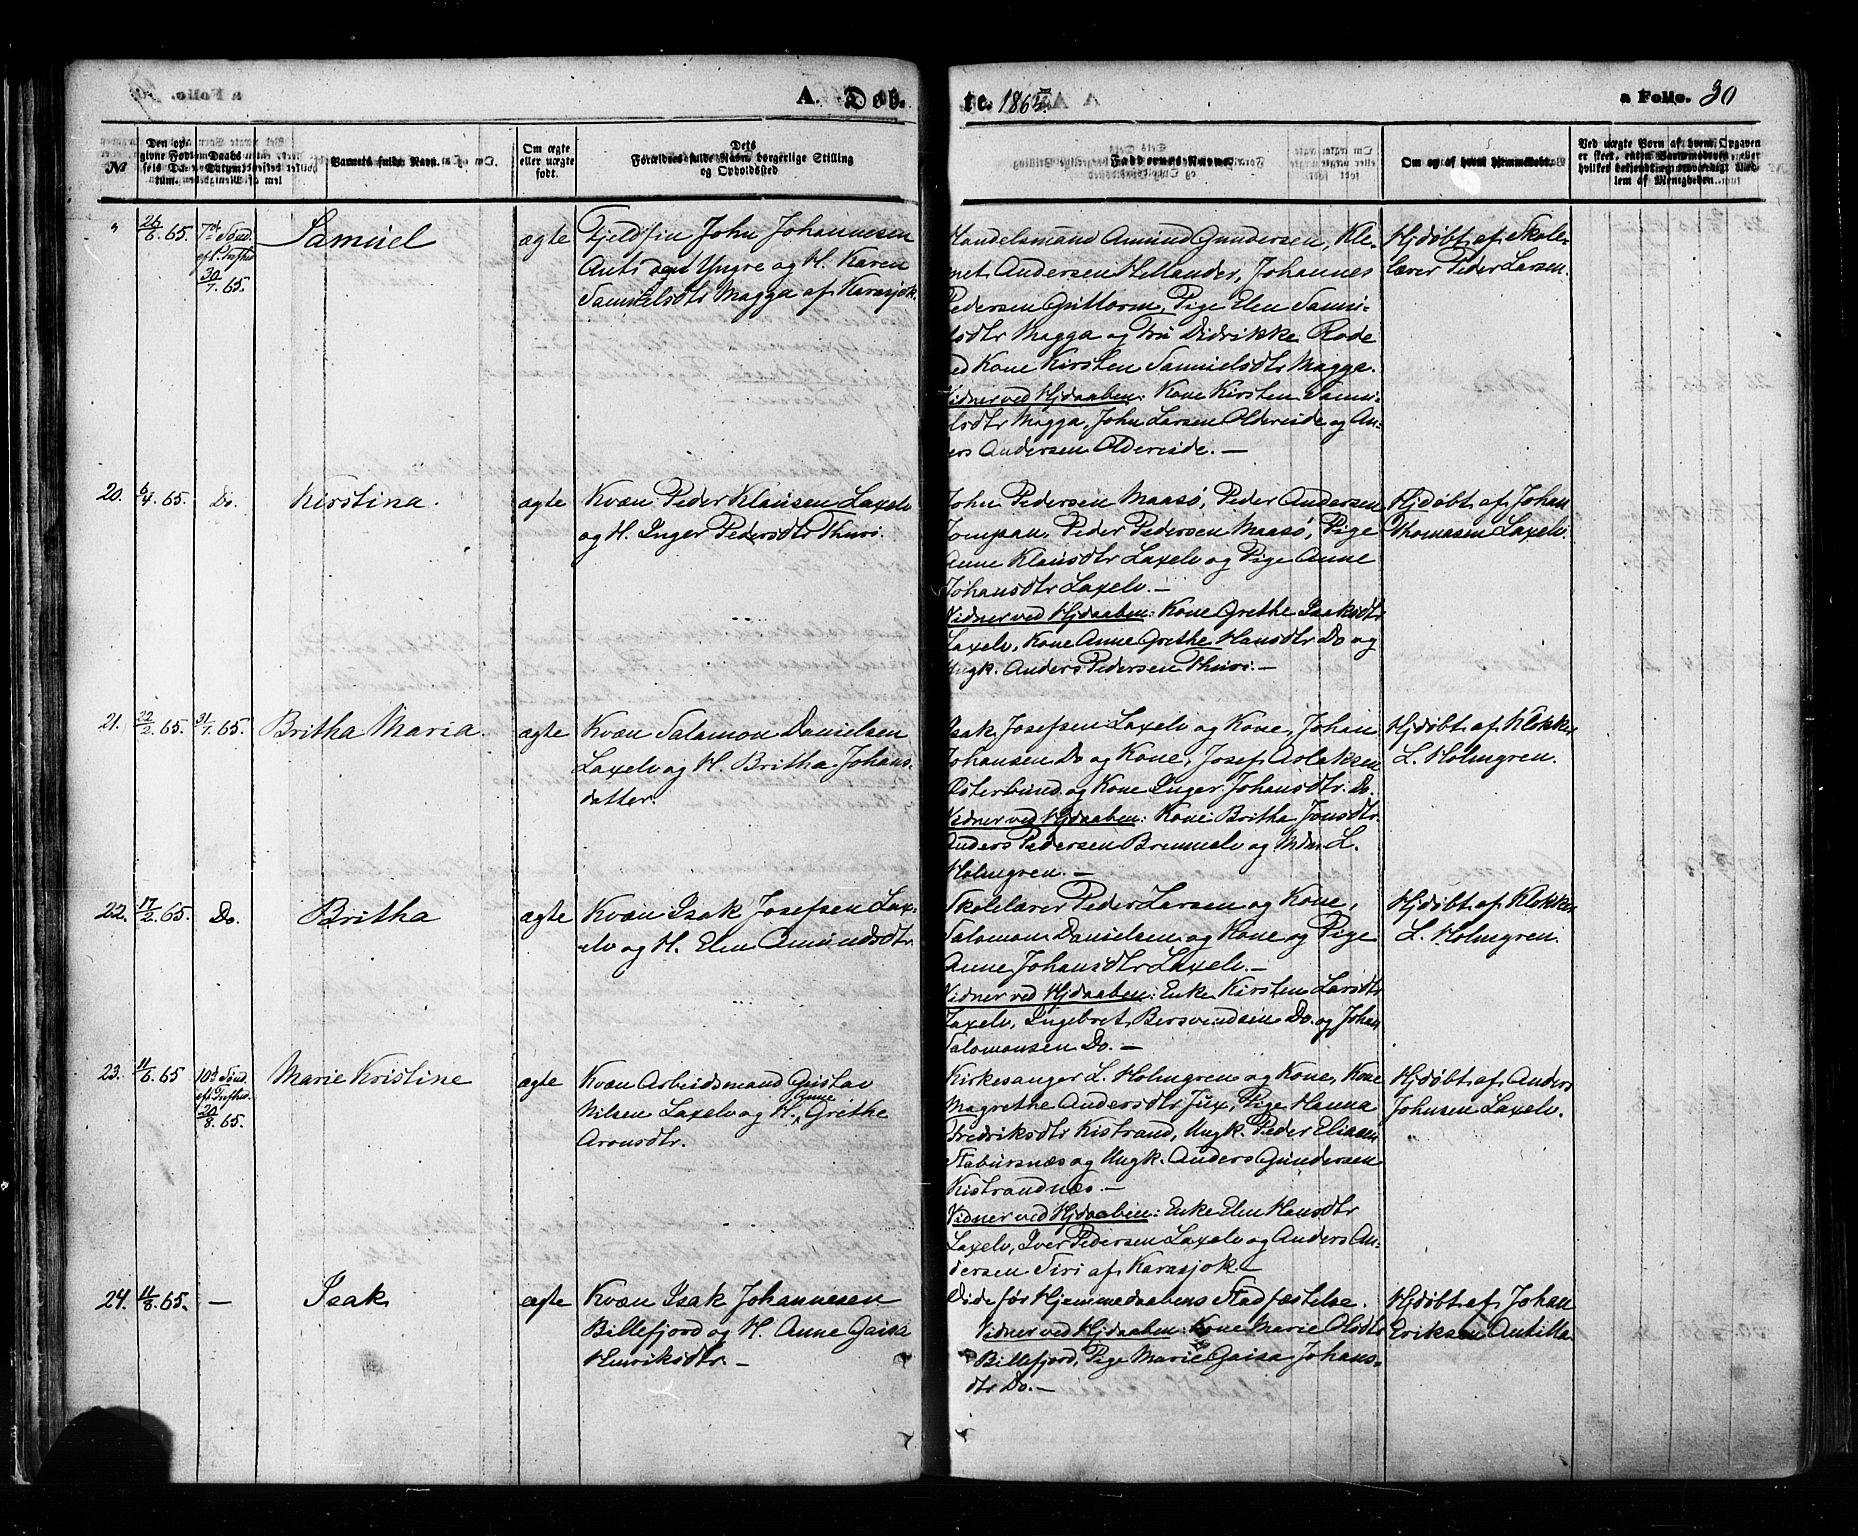 A. Døb.
te. 1865.
a Folio. 30
№
Den opgivne Fødselsdatum.
Daabs Datum.
Barnets fulde Navn.
Om ægte eller uægte født.
Dets Forældres fulde Navn, borgerlige Stilling og Opholdssted
Faddernes Navne.
Om og af hvem hjemmedøbt.
Ved uægte Børn af hvem Opgaven er skeet, enten Barnemoderen eller hvilket bekjendt og troværdigt Medlem af Menigheden.
" 26/6. 65. 7de Sønd. eft. Trefht. 30/7. 65.
Samuel
ægte
Fjeldfin John Johannesen
Anti den Yngre og H. Karen
Samuelsdtr Magga af Karasjok.
Handelsmand Amund Gundersen, Kle-
met Andersen Hellander, Johannes
Pedersen Guttorm, Pige Elen Samu-
elsdtr Magga og Fru Didrikke Rode
ved Kone Kirsten Samuelsdtr Magga.
Vidner ved Hjdaaben: Kone Kirsten Samu-
elsdtr Magga, John Larsen Oldereide og An-
ders Andersen Oldereide. —
Hjdøbt af Skole-
lærer Peder Larsen.
20. 6/4. 65. Do.
Kirstina.
ægte
Kvæn Peder Klausen Laxelv
og H. Inger Pedersdtr Thuri.
John Pedersen Maasø, Peder Andersen
Tompan, Peder Pedersen Maasø, Pige
Anne Klausdtr Laxelv og Pige Anne
Johansdtr Laxelv. —
Vidner ved Hjdaaben: Kone Grethe Isaksdtr
Laxelv, Kone Anne Grethe Hansdtr Do og
Ungk. Anders Pedersen Thuri. —
Hjdøbt af Johan
Thomasen Laxelv.
21. 22/2. 65. 31/7. 65.
Britha Maria.
ægte
Kvæn Salamon Danielsen
Laxelv og H. Britha Johans-
datter.
Isak Josefsen Laxelv og Kone, Johan
Johansen Do og Kone, Josef Aslaksen
Østerbund og Kone Inger Johansdtr. Do.
Vidner ved Hjdaaben: Kone Britha Jonsdtr.
Anders Pedersen Brennelv og L.
Holmgren. —
Hjdøbt af Klokker
L. Holmgren.
22. 17/2. 65. Do.
Britha
ægte
Kvæn Isak Josefsen Lax-
elv og H. Elen Amundsdtr
Skolelærer Peder Larsen og Kone,
Salomon Danielsen og Kone og Pige
Anne Johansdtr Laxelv. —
Vidner ved Hjdaaben: Enke Kirsten Larsdtr
Laxelv, Ingebret Bersvendsen Do. og Johan
Salomonsen Do. —
Hjdøbt af Klokker
L. Holmgren.
23. 11/6. 65 10de Sønd. eft. Trefht. 20/8. 65.
Marie Kristine
ægte
Kvæn Arbeidsmand Gustav
Nilsen Laxelv og H. Anne Grethe
Aronsdtr.
Kirkesanger L. Holmgren og Kone, Kone
Magrethe Andersdtr Jux, Pige Hanna
Fredriksdtr Kistrand, Ungk. Peder Eliasen
Stabursnæs og Ungk. Anders Gundersen
Kistrandnæs. —
Vidner ved Hjdaaben: Enke Elen Hansdtr
Laxelv, Iver Pedersen Laxelv og Anders An-
dersen Siri af Karasjok. —
Hjdøbt af Anders
Johnsen Laxelv.
24. 11/8. 65. —
Isak
ægte
Kvæn Isak Johannesen
Billefjord og H. Anne Gaisa
Henriksdtr. —
Døde før Hjemmedaabens Stadfæstelse.
Vidner ved Hjdaaben: Kone Marie Olsdtr
Billefjord, Pige Marie Gaisa Johans-
dtr Do. —
Hjdøbt af Johan
Eriksen Antilla